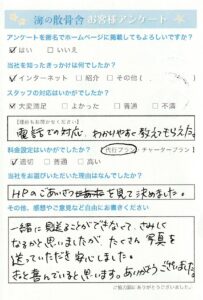 海の散骨舎 お客様アンケート
アンケートを匿名でホームページに掲載してもよろしいですか?
☑はい □いいえ
当社を知ったきっかけは何でしたか?
☑インターネット □紹介 □その他( )
スタッフの対応はいかがでしたか?
☑大変満足 □よかった □普通 □不満
【理由もお聞かせください】
電話での対応、わかりやすく教えてもらえた。
料金設定はいかがでしたか? 代行プラン チャータープラン
☑適切 □普通 □高い
当社をお選びいただいた理由はなんですか?
HPのごあいさつを見て決めました。
その他、感想やご意見など自由にお書きください
一緒に見送ることができなくて、さみしく
なるかと思いましたが、たくさん写真を
送っていただき安心しました。
きっと喜んでいると思います。ありがとうございました。
ご協力誠にありがとうございました。